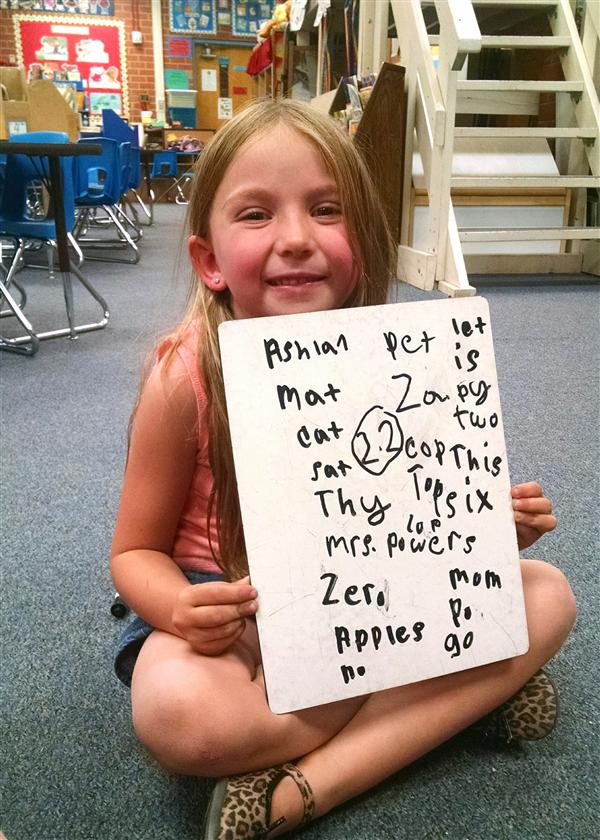 Ashlan pet let
is
mat Zoo py
cat 22 two
sat cop This
Thy Top six
lap
mrs. powers
Zero mom
Apples po
no go